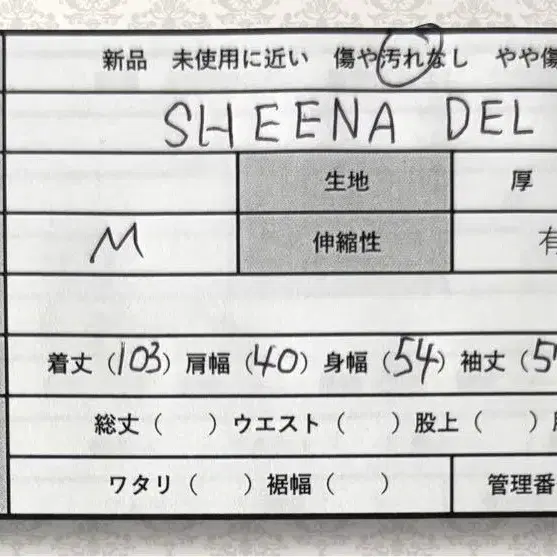 新品 未使用に近い 傷や汚れなし やや傷
SHEENA DEL
生地 厚
M 伸縮性 有
着丈（103）肩幅（40）身幅（54）袖丈（5
総丈（ ）ウエスト（ ）股上（ ）
ワタリ（ ）裾幅（ ） 管理番